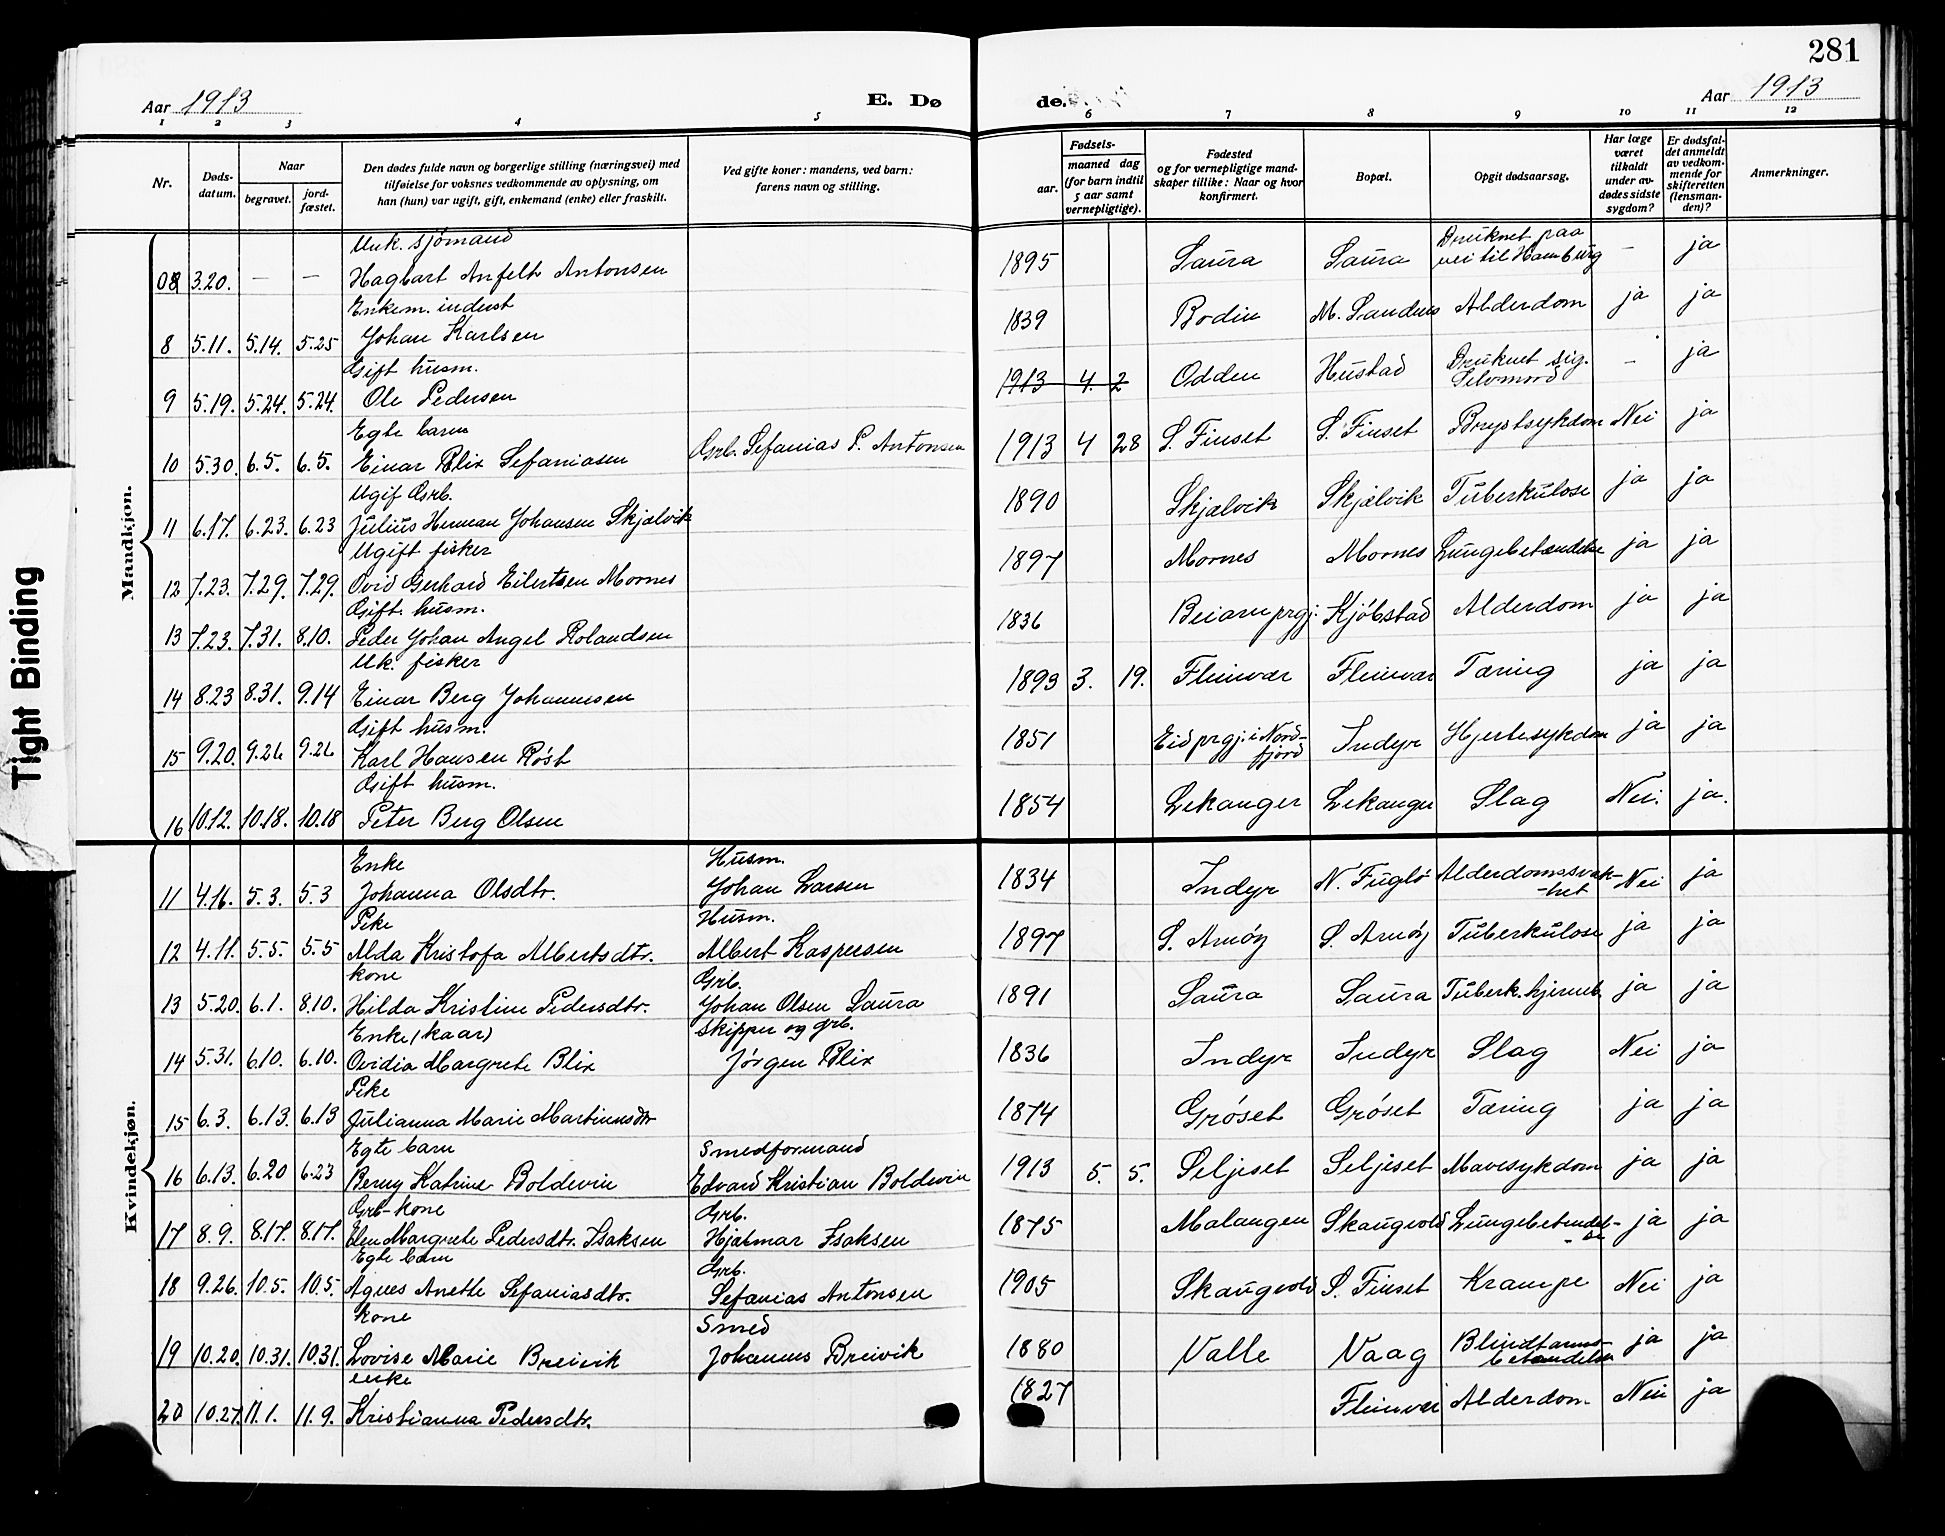 281
Aar 1913
E. Dø
de.
Aar 1913
1 2 3 4 5 6 7 8 9 10 11 12
Nr.
Døds-
datum.
Naar
begravet.
jord-
fæstet.
Den dødes fulde navn og borgerlige stilling (næringsvei) med
tilføielse for voksnes vedkommende av oplysning, om
han (hun) var ugift, gift, enkemand (enke) eller fraskilt.
Ved gifte koner: mandens, ved barn:
farens navn og stilling.
Fødsels-
aar.
maaned dag
(for barn indtil
5 aar samt
vernepligtige).
Fødested
og for vernepligtige mand-
skaper tillike: Naar og hvor
konfirmert.
Bopæl.
Opgit dødsaarsag.
Har læge
været
tilkaldt
under av-
dødes sidste
sygdom?
Er dødsfal-
det anmeldt
av vedkom-
mende for
skifteretten
(lensman-
den)?
Anmerkninger.
Tight Binding
Mandkjøn.
Unk. sjømand
08 3.20. — — Hagbart Anfelt Antonsen 1895 Saura Saura Druknet paa
vei til Hamburg — ja
Enkem. inderst
8 5.11. 5.14. 5.25 Johan Karlsen 1839 Bodin M. Sandnes Alderdom ja ja
Gift husm.
9 5.19. 5.24. 5.24. Ole Pedersen 1913 4. 2 Odden Hustad Druknet sig.
Selvmord — ja
Egte barn
10 5.30. 6.5. 6.5. Einar Blix Sefaniasen Grb. Sefanias P. Antonsen 1913 4 28 S. Finset S. Finset Brystsykdom Nei ja
Ugif Grb.
11 6.17. 6.23. 6.23 Julius Herman Johansen Skjælvik 1890 Skjælvik Skjælvik Tuberkulose ja ja
Ugift fisker
12 7.23. 7.29. 7.29. Ovid Gerhard Eilertsen Mornes 1897 Mornes Mornes Lungebetændelse ja ja
Gift husm.
13 7.23. 7.31. 8.10. Peder Johan Angel Rolandsen 1836 Beiarn prgj. Kjøbstad Alderdom ja ja
Uk. fisker
14 8.23 8.31. 9.14 Einar Berg Johannesen 1893 3. 19. Fleinvær Fleinvær Tæring ja ja
Gift husm.
15 9.20. 9.26 9.26 Karl Hansen Røst 1851 Eid prgj. i Nord-
fjord Indyr Hjertesykdom ja ja
Gift husm.
16 10.12. 10.18. 10.18 Peter Berg Olsen 1854 Lekanger Lekanger Slag Nei. ja.
Kvindekjøn.
Enke Husm.
11 4.16. 5.3. 5.3 Johanna Olsdtr. Johan Larsen 1834 Indyr N. Fuglø Alderdomssvak-
-het Nei ja
Pike Husm.
12 4.11. 5.5. 5.5 Alda Kristofa Albertsdtr. Albert Kaspersen 1897 S. Arnøy S. Arnøy Tuberkulose ja ja
kone Grb.
13 5.20. 6.1. 8.10. Hilda Kristine Pedersdtr. Johan Olsen Saura 1891 Saura Saura Tuberk. hjerneb. ja ja
Enke (kaar) skipper og grb.
14 5.31. 6.10. 6.10. Ovidia Margrete Blix Jørgen Blix 1836 Indyr Indyr Slag Nei ja
Pike
15 6.3. 6.13. 6.13 Julianna Marie Martinusdtr 1874 Grøset Grøset Tæring ja ja
Egte barn Smedformand
16 6.13. 6.20 6.23 Berny Katrine Boldevin Edvard Kristian Boldevin 1913 5. 5. Seljeset Seljeset Mavesykdom ja ja
Grb-kone Grb.
17 8.9. 8.17. 8.17. Elen Margrete Pedersdtr. Isaksen Hjalmar Isaksen 1875 Malangen Skaugvold Lungebetændel-
-se ja ja
Egte barn Grb.
18 9.26. 10.5. 10.5. Agnes Anette Sefaniasdtr. Sefanias Antonsen 1905 Skaugvold S. Finset Krampe Nei ja
kone Smed
19 10.20. 10.31. 10.31. Lovise Marie Breivik Johannes Breivik 1880 Valle Vaag Blindtarms-
betændelse ja ja
enke
20 10.27. 11.1. 11.9. Kristianna Pedersdtr. 1827 Fleinvær Alderdom Nei ja